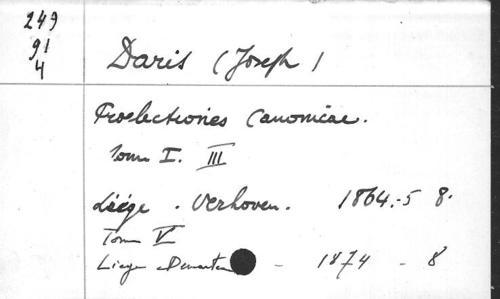 249
91
4
Daris (Joseph)
Praelectiones Canonicae.
Tome I. III
Liége. Verhoven. 1864.-5 8.
Tom V
Liege - 1874 - 8